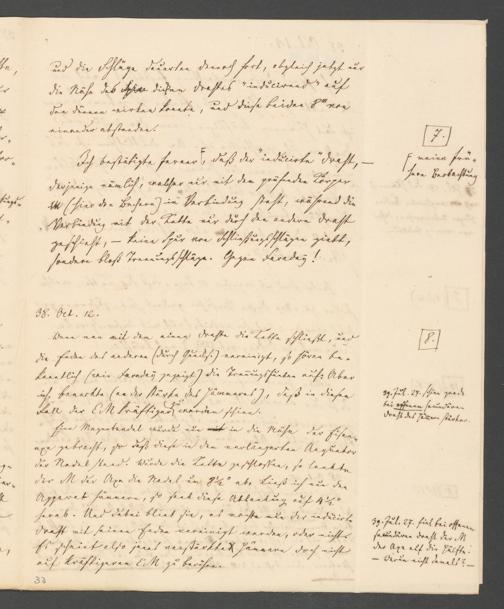 und die Schläge dauerten dennoch fort, obgleich jetzt nur
die Nähe des dicken Drahtes "inducirend" auf
den dünnen wirken konnte, und diese beiden 8''' von
einander abstanden.
Ich bestätigte ferner, daß der "inducirte" Draht, —
derjenige nämlich, welcher nur mit dem prüfenden Körper
(hier den Bechern) in Verbindung steht, während die
Verbindung mit der Kette nur durch den andern Draht
geschieht, — keine Spur von Schließungsschlägen giebt,
sondern bloß Trennungsschläge. Gegen Faraday!
7.
meine früh-
here Beobachtung
38. Oct. 12.
Wenn man mit dem einen Drahte die Kette schließt, und
die Enden des anderen (durch Quecks.) vereinigt, so hören be-
kanntlich (wie Faraday gezeigt) die Trennungsfunken auf. Aber
ich bemerkte (an der Stärke des Jammerns), daß in diesem
Fall der E.M kräftiger werden schien.
Eine Magnetnadel wurde nun in die Nähe der Eisen-
axe gebracht, so daß diese in dem verlängerten Aequator
der Nadel stand. Wurde die Kette geschlossen, so lenkte
der M der Axe die Nadel um 8½° ab. Ließ ich nun den
Apparat jammern, so sank diese Ableitung auf 4½°
herab. Und dabei blieb sie, es mochte nun der inducirte
Draht mit seinen Enden vereinigt werden, oder nicht.
Es scheint also jenes verstärkte Jammern doch nicht
auf kräftigerem E.M zu beruhen.
8.
39. Jul. 27.
bei offenem secundären
Draht das Jammern stärker.
39. Jul. 27. Sank bei offenem
secundären Draht der M
der Axe auf die Hälfte
— Warum nicht damals? —
33